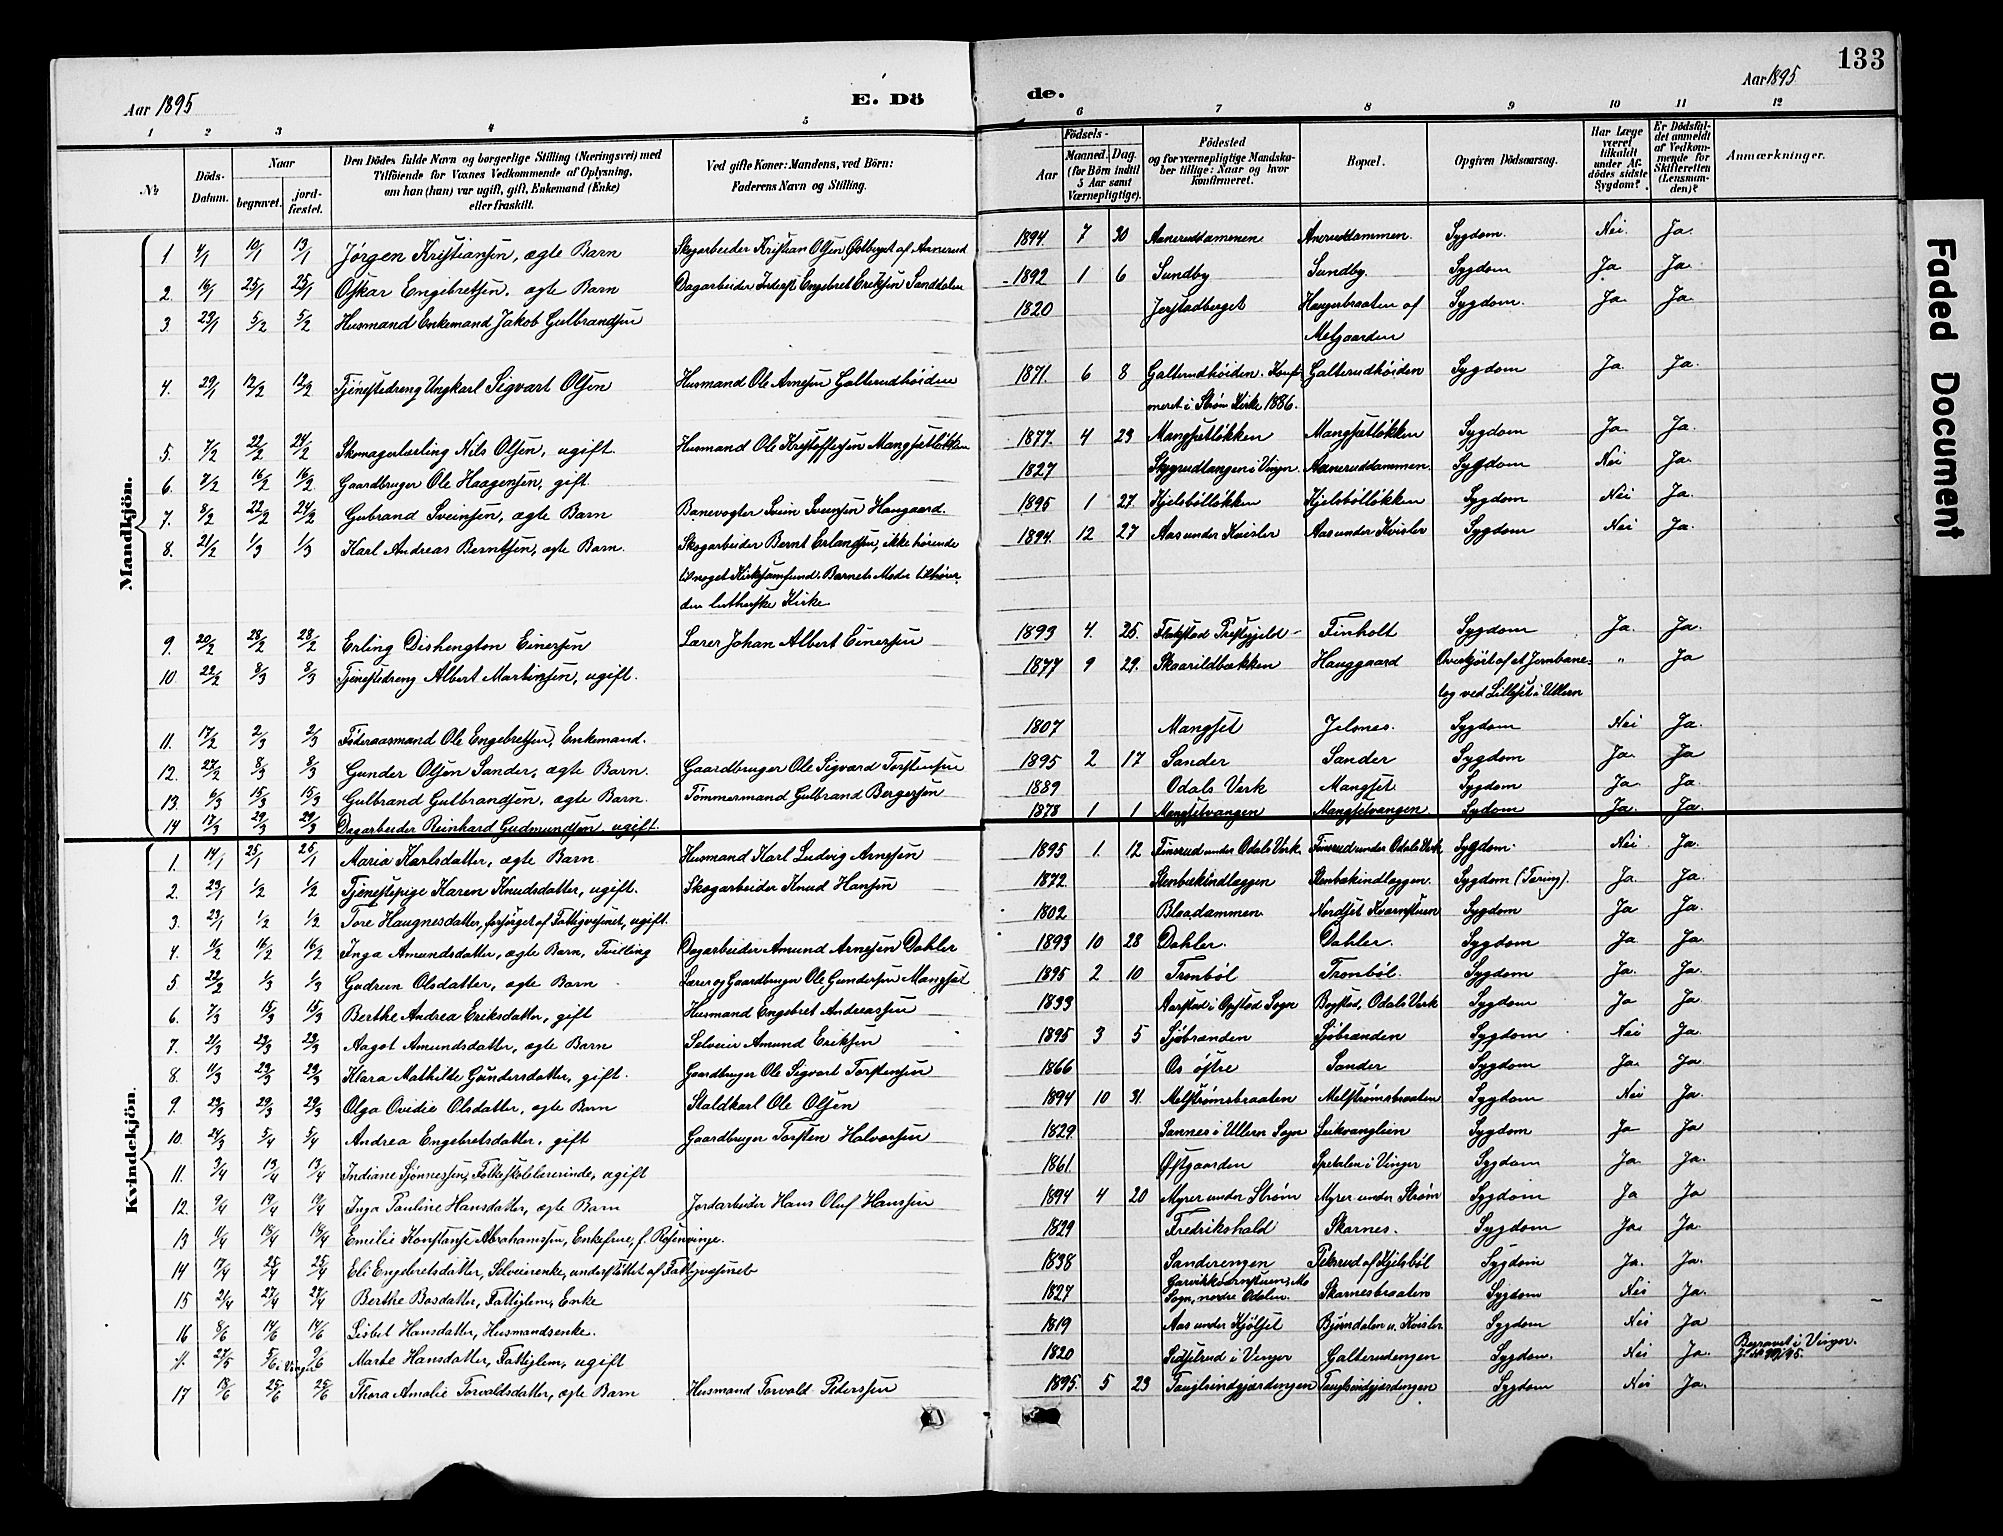 133
Aar 1895
E. Dö
de.
Aar 1895
1 2 3 4 5 6 7 8 9 10 11 12
№ Döds-Datum. Naar begravet. jord-fæstet.
Den Dödes fulde Navn og borgerlige Stilling (Næringsvei) med
Tilföiende for Voxnes Vedkommende af Oplysning,
om han (hun) var ugift, gift, Enkemand (Enke)
eller fraskilt.
Ved gifte Koner: Mandens, ved Börn:
Faderens Navn og Stilling.
Födsels-
Aar Maaned. Dag.
(for Börn indtil
5 Aar samt
Værnepligtige).
Födested
og for værnepligtige Mandska-
ber tillige: Naar og hvor
konfirmeret.
Bopæl.
Opgiven Dödsaarsag.
Har Læge
været
tilkaldt
under Af-
dödes sidste
Sygdom?
Er Dödsfal-
det anmeldt
af Vedkom-
mende for
Skifteretten
(Lensman-
den)?
Anmærkninger.
Faded Document
Mandkjön.
1 4/1 10/1 13/1 Jørgen Kristiansen, ægte Barn Skogarbeider Kristian Olsen Østberget af Aanerud 1894. 7 30 Aaneruddammen Aneruddammen. Sygdom. Nei. Ja.
2. 16/1 25/1 25/1 Oskar Engebretsen. ægte Barn Dagarbeider Inderst Engebret Eriksen Sanddalen 1892 1 6 Sundby Sundby. Sygdom Ja Ja.
3 29/1 5/2 5/2 Husmand Enkemand Jakob Gulbrandsen 1820 Jerstadberget Haugerbraaten af Sygdom. Ja Ja.
Melgaarden
4. 29/1 12/2 12/2 Tjenestedreng Ungkarl Sigvart Olsen Husmand Ole Arnesen Galterudhøiden 1871. 6 8 Galterudhøiden. Konfir Galterudhøiden Sygdom Ja. Ja.
meret i Strøm Kirke 1886.
5. 7/2 22/2 24/2 Skomagerlærling Nils Olsen, ugift. Husmand Ole Kristoffersen Mangsetløkken 1877. 4 23 Mangsetløkken Mangsetløkken Sygdom Ja. Ja.
6. 7/2 16/2 16/2 Gaardbruger Ole Haagensen, gift 1827 Skyrudtangen i Vinger. Aaneruddammen. Sygdom Nei Ja.
7. 8/2 22/2 24/2 Gubrand Sveinsen, ægte Barn Banevogter Svein Sveinsen Haugaard. 1895 1 27 Kjelsbølløkken Kjelsbølløkken Sygdom Nei Ja.
8. 21/2 1/3 1/3 Karl Andreas Berntsen, ægte Barn. Skogarbeider Bernt Erlandsen, ikke hørende 1894. 12 27 Aas under Kvisler Aas under Kvisler Sygdom Nei Ja.
til noget Kirkesamfund. Barnets Moder tilhører
den lutherske Kirke
9. 20/2 28/2 28/2 Erling Dishengton Einersen Lærer Johan Albert Einersen 1893 4. 25. Prestgjeld Finholt Sygdom Ja. Ja.
10 22/2 8/3 8/3 Tjenestedreng Albert Martinsen, ugift. 1877 9 29. Skaarildbækken Hauggaard Overkjørt af et Jernbane- " Ja
tog ved Lillset i Ullern
11. 17/2 2/3 2/3 Føderaasmand Ole Engebretsen, Enkemand. 1807 Mangset Jelsnes. Sygdom Nei Ja.
12. 27/2 8/3 8/3 Gunder Olsen Sander, ægte Barn. Gaardbruger Ole Sigvard Torstensen 1895 2 17 Sander Sander Sygdom Ja. Ja
13. 6/3 15/3 15/3 Gulbrand Gulbrandsen, ægte Barn. Tømmermand Gulbrand Bergersen 1889 Odals Verk Mangset. Sygdom Ja. Ja.
14 17/3 29/3 29/3 Dagarbeider Reinhard Gudmundsen ugift. 1878 1 1 Mangsetvangen Mangsetvangen Sydom Ja. Ja.
Kvindekjön.
1. 14/1 25/1 25/1 Maria Karlsdatter, ægte Barn Husmand Karl Ludvig Arnesen 1895 1. 12 Finsrud under Odals Verk Finsrud under Odals Verk Sygdom. Nei. Ja.
2. 23/1 1/2 1/2 Tjenestepige Karen Knudsdatter, ugift. Skogarbeider Knud Hansen 1872. Stenbækindlæggen Stenbækindlæggen. Sygdom (Tæring). Ja. Ja.
3. 23/1 1/2 1/2 Tore Haugnesdatter, forsørget af Fattigvesenet, ugift. 1802 Blaadammen Nordset Kværnstuen Sygdom Ja Ja.
4. 11/2 16/2 16/2 Inga Amundsdatter, ægte Barn, Tvilling Dagarbeider Amund Arnesen Dahler 1893 10 28 Dahler. Dahler. Sygdom Ja. Ja.
5 22/2 1/3 1/3 Gudrun Olsdatter, ægte Barn Lærer og Gaardbruger Ole Gundersen Mangset 1895 2 10 Trønbøl Trønbøl. Sygdom Ja. Ja.
6. 7/3 15/3 15/3 Berthe Andrea Eriksdatter, gift Husmand Engebret Andreassen 1833 Aarstad i Opstad Sogn Bogstad, Odals Verk Sygdom Ja Ja.
7. 21/3 29/3 29/3 Aagot Amundsdatter, ægte Barn Selveier Amund Eriksen 1895 3 5 Sjøbranden Sjøbranden Sygdom Nei Ja.
8. 11/3 29/3 29/3 Klara Mathilde Gundersdatter, gift. Gaardbruger Ole Sigvart Torstensen 1866 Os østre Sander Sygdom Ja. Ja.
9. 23/3 29/3 29/3 Olga Ovidie Olsdatter, ægte Barn Staldkarl Ole Olsen 1894 10 31. Melstrømsbraaten Melstrømsbraaten Sygdom Nei Ja.
10. 24/3 5/4 5/4 Andrea Engebretsdatter, gift Gaardbruger Torsten Halvorsen 1829. Sannes i Ullern Sogn Leikvanglien Sygdom Ja Ja
11. 3/4 13/4 13/4 Indiane Sjønnessen, Folkeskolelærerinde, ugift 1861. Østgaarden Spetalen i Vinger Sygdom Ja. Ja.
12. 9/4 19/4 19/4 Inga Pauline Hansdatter, ægte Barn Jordarbeider Hans Oluf Hanssen 1894 4 20 Myrer under Strøm Myrer under Strøm Sygdom Ja Ja
13 11/4 18/4 18/4 Emilie Konstanse Abrahamssen, Enkefrue, f. Rosenvinge. 1829 Fredrikshald Skarnes. Sygdom Ja. Ja.
14 17/4 25/4 25/4 Eli Engebretsdatter, Selveierenke, understøttet af Fattigvesenet 1838 Sanderengen Pekerud af Kjelsbøl Sygdom Ja. Ja.
15 21/4 27/4 27/4 Berthe Bosdatter, Fattiglem, Enke 1827 Garvikkværnstuen, Mo Skarnesbraaten Sygdom Nei Ja.
Sogn, nordre Odalen.
16 8/6 14/6 14/6 Lisbet Hansdatter, Husmandsenke. 1819 Aas under Kjølset Bjørndalen u. Kvisler Sygdom Nei Ja
27/5 5/6 i Vinger 9/6 Marte Hansdatter, Fattiglem, ugift 1820 Sidselrud i Vinger Galterudengen Sygdom. Nei Ja. Begravet i Vinger.
17 18/6 25/6 25/6 Thora Amalie Torvaldsdatter, ægte Barn Husmand Torvald Pederssen 1895. 5 23 Sygdom Nei Ja.